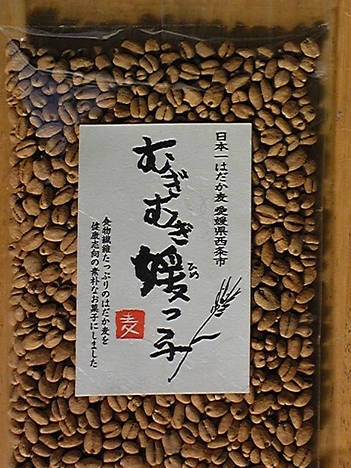 日本一はだか麦 愛媛県西条市
むぎむぎ媛っ子
ひめ
麦
食物繊維たっぷりのはだか麦を
健康志向の素朴なお菓子にしました